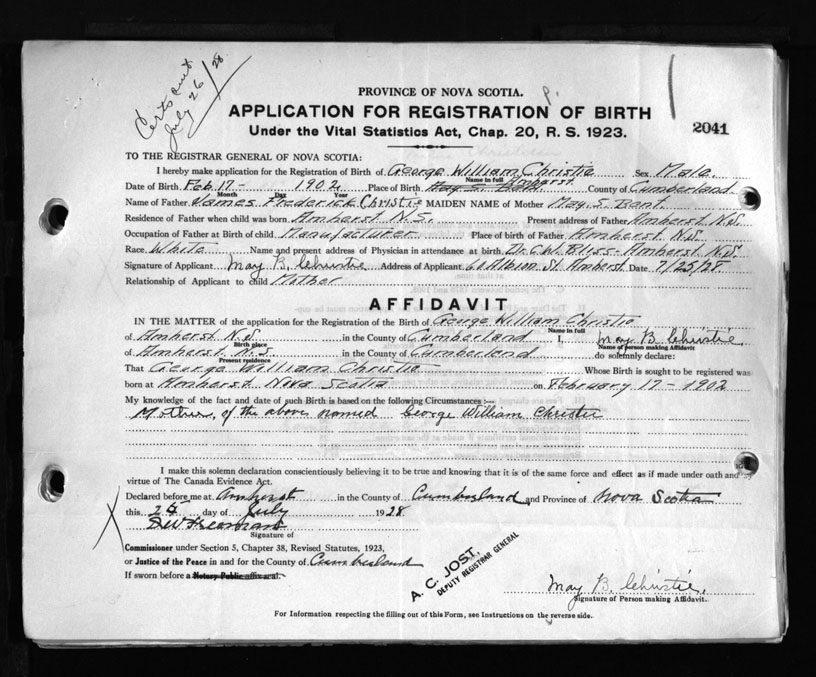 Certs sent
July 26/28
PROVINCE OF NOVA SCOTIA.
APPLICATION FOR REGISTRATION OF BIRTH
Under the Vital Statistics Act, Chap. 20, R. S. 1923.
2041
TO THE REGISTRAR GENERAL OF NOVA SCOTIA:
I hereby make application for the Registration of Birth of George William Christie Sex Male
Name in full
Date of Birth Feb 17- 1902 Place of Birth Amherst County of Cumberland
Month Day Year
Name of Father James Frederick Christie MAIDEN NAME of Mother May. S. Bant
Residence of Father when child was born Amherst N.S. Present address of Father Amherst N.S.
Occupation of Father at Birth of child Manufacturer Place of birth of Father Amherst N.S.
Race White Name and present address of Physician in attendance at birth Dr. C.W. Bliss Amherst N.S.
Signature of Applicant May B. Christie Address of Applicant 60 Albion St. Amherst Date 7/25/28
Relationship of Applicant to child Mother
AFFIDAVIT
IN THE MATTER of the application for the Registration of the Birth of George William Christie
Name in full
of Amherst N.S. in the County of Cumberland I, May B Christie,
Birth place Name of person making Affidavit
of Amherst N.S. in the County of Cumberland do solemnly declare:
Present residence
That George William Christie Whose Birth is sought to be registered was
born at Amherst Nova Scotia on February 17-1902
My knowledge of the fact and date of such Birth is based on the following Circumstances :—
Mother, of the above named George William Christie
I make this solemn declaration conscientiously believing it to be true and knowing that it is of the same force and effect as if made under oath and by
virtue of The Canada Evidence Act.
Declared before me at Amherst in the County of Cumberland and Province of Nova Scotia
this 24 day of July 1928
Signature of
Commissioner under Section 5, Chapter 38, Revised Statutes, 1923,
or Justice of the Peace in and for the County of Cumberland
If sworn before a Notary Public affix seal.
A. C. JOST,
DEPUTY REGISTRAR GENERAL
May B. Christie.
Signature of Person making Affidavit.
For Information respecting the filling out of this Form, see Instructions on the reverse side.